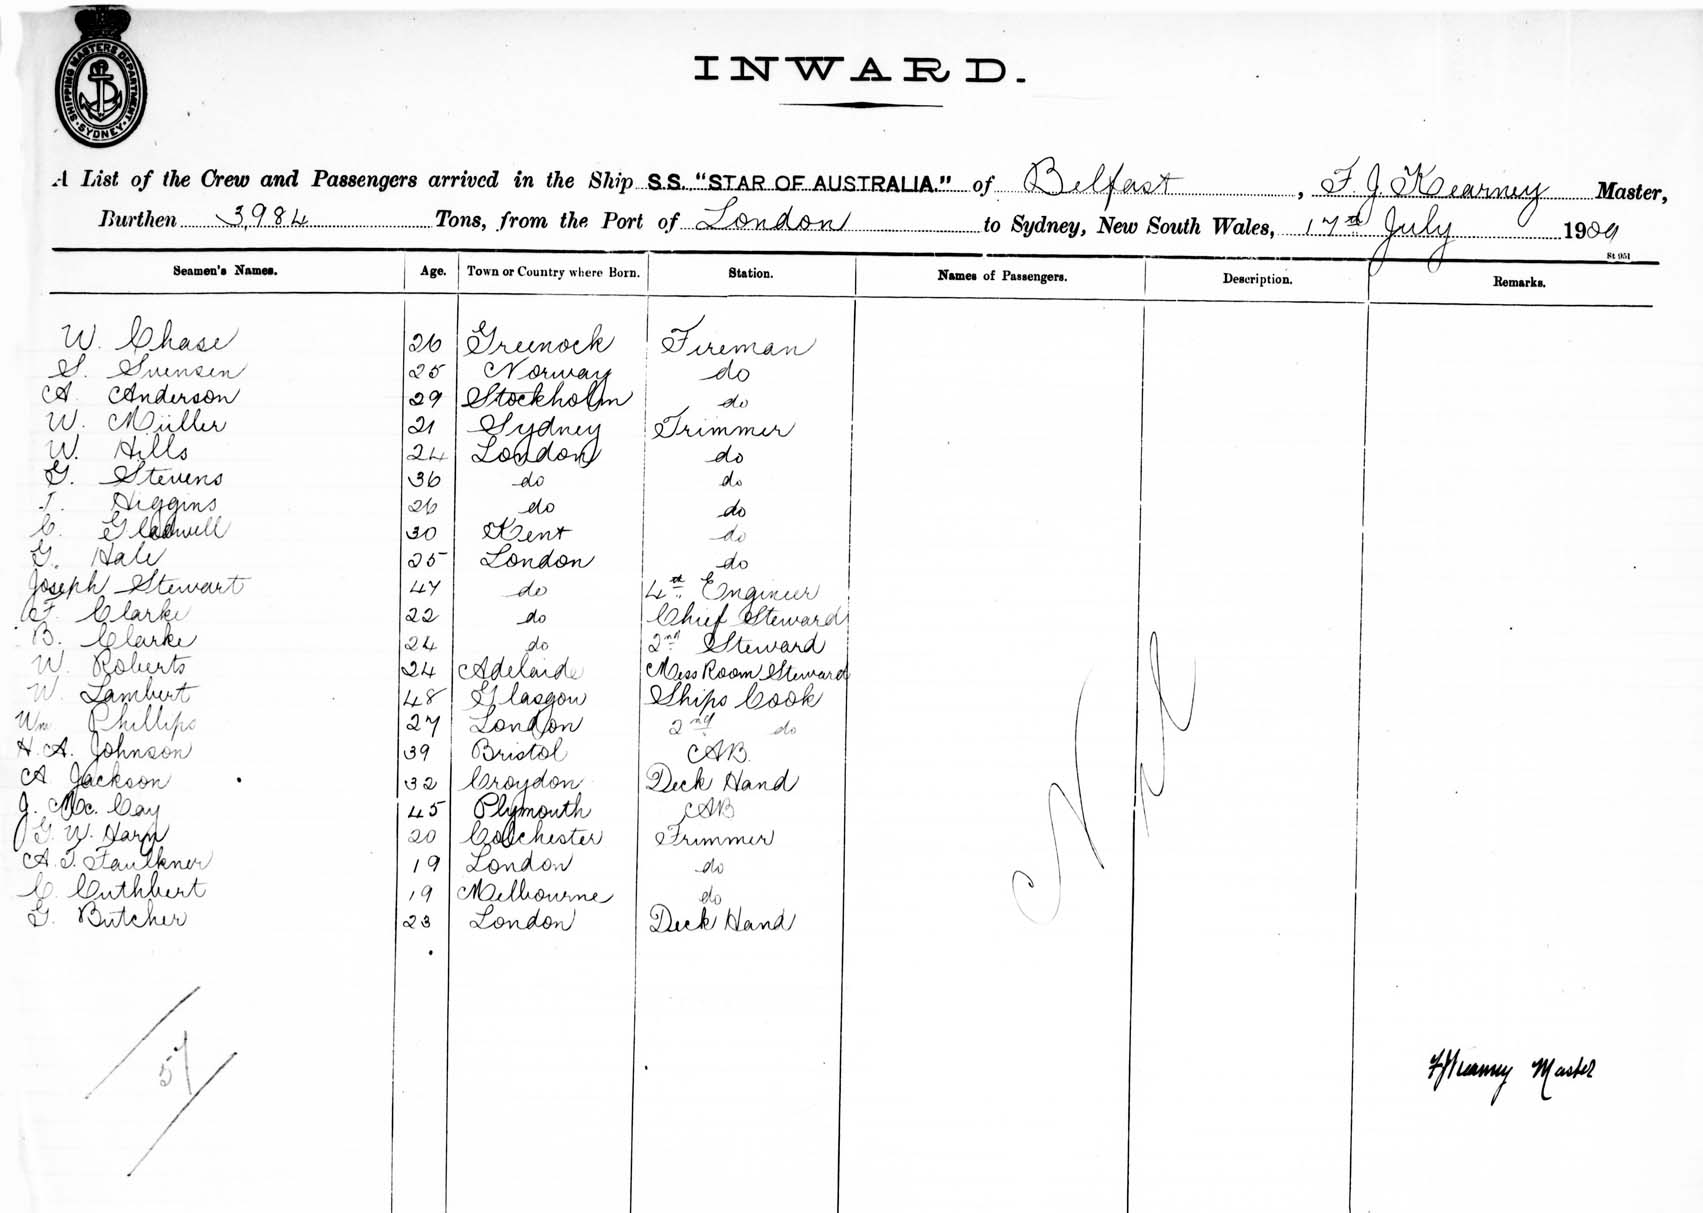 SHIPPING MASTERS DEPARTMENT
SYDNEY
INWARD.
A List of the Crew and Passengers arrived in the Ship S.S. "STAR OF AUSTRALIA." of Belfast, F. J. Kearney Master,
Burthen 3,984 Tons, from the Port of London to Sydney, New South Wales, 17th July 1909
St 951
Seamen's Names. Age. Town or Country where Born. Station. Names of Passengers. Description. Remarks.
W. Chase 26 Greenock Fireman
S. Svensen 25 Norway do
A. Anderson 29 Stockholm do
W. Müller 21 Sydney Trimmer
W. Hills 24 London do
G. Stevens 36 do do
T. Higgins 26 do do
C. Gladwell 30 Kent do
G. Hale 25 London do
Joseph Stewart 47 do 4th Engineer
F. Clarke 22 do Chief Steward
B. Clarke 24 do 2nd Steward
W. Roberts 24 Adelaide Mess Room Steward
W. Lambert 48 Glasgow Ships Cook
Wm Phillips 27 London 2nd do
H. A. Johnson 39 Bristol AB.
A Jackson 32 Croydon Deck Hand
J. Mc. Cay 45 Plymouth AB
G. W. Harn 20 Colchester Trimmer
A. T. Faulkner 19 London do
C. Cuthbert 19 Melbourne do
G. Butcher 23 London Deck Hand
Nil
57
FJKearney Master